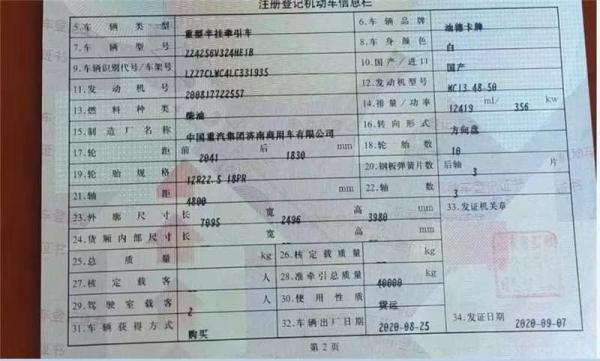 注册登记机动车信息栏
5.车辆类型 重型半挂牵引车 6.车辆品牌 汕德卡牌
7.车辆型号 ZZ4256V324HE1B 8.车身颜色 白
9.车辆识别代号/车架号 LZZ7CLWC4LC331935 10.国产/进口 国产
11.发动机号 200817722557 12.发动机型号 MC13.48-50
13.燃料种类 柴油 14.排量/功率 12419 ml/ 356 kw
15.制造厂名称 中国重汽集团济南商用车有限公司 16.转向形式 方向盘
17.轮距 前 2041 后 1830 mm 18.轮胎数 10
19.轮胎规格 12R22.5 18PR 20.钢板弹簧片数 后轴 3 片
21.轴距 4800 mm 22.轴数 3
23.外廓尺寸 长 7095 宽 2496 高 3980 mm 33.发证机关章
24.货厢内部尺寸 长 宽 高 mm
25.总质量 kg 26.核定载质量 kg
27.核定载客 人 28.准牵引总质量 40000 kg
29.驾驶室载客 2 人 30.使用性质 货运
31.车辆获得方式 购买 32.车辆出厂日期 2020-08-25 34.发证日期 2020-09-07
第2页